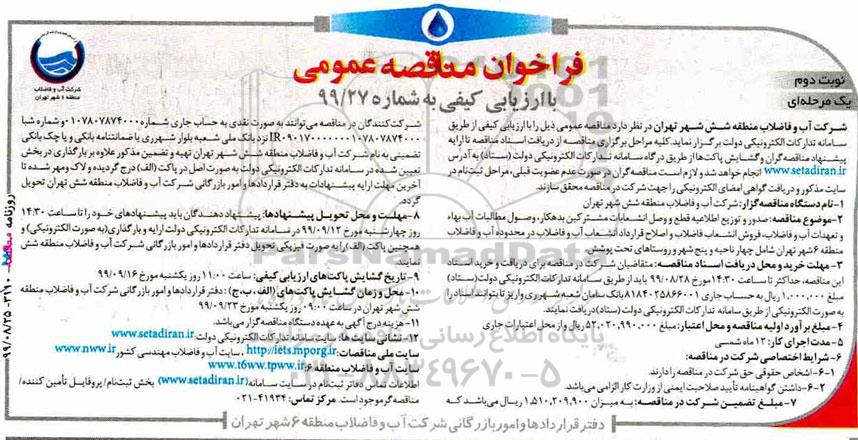 فراخوان مناقصه عمومی
با ارزیابی کیفی به شماره ۹۹/۲۷
نوبت دوم
یک مرحله‌ای
شرکت آب و فاضلاب
منطقه ۶ شهر تهران
شرکت آب و فاضلاب منطقه شش شهر تهران در نظر دارد مناقصه عمومی ذیل را با ارزیابی کیفی از طریق
سامانه تدارکات الکترونیکی دولت برگزار نماید. کلیه مراحل برگزاری مناقصه از دریافت اسناد مناقصه تا ارایه
پیشنهاد مناقصه گران و گشایش پاکت‌ها از طریق درگاه سامانه تدارکات الکترونیکی دولت (ستاد) به آدرس
www.setadiran.ir انجام خواهد شد و لازم است مناقصه گران در صورت عدم عضویت قبلی، مراحل ثبت‌نام در
سایت مذکور و دریافت گواهی امضای الکترونیکی را جهت شرکت در مناقصه محقق سازند.
۱-نام دستگاه مناقصه گزار: شرکت آب و فاضلاب منطقه شش شهر تهران
۲-موضوع مناقصه: صدور و توزیع اطلاعیه قطع و وصل انشعابات مشترکین بدهکار، وصول مطالبات آب بهاء
و تعهدات آب و فاضلاب، فروش انشعاب فاضلاب و اصلاح قرارداد انشعاب آب و فاضلاب در محدوده آب و فاضلاب
منطقه ۶ شهر تهران شامل چهار ناحیه و پنج شهر و روستاهای تحت پوشش
۳- مهلت خرید و محل دریافت اسناد مناقصه: متقاضیان شرکت در مناقصه برای دریافت و خرید اسناد
این مناقصه، حداکثر تا ساعت ۱۴:۳۰ مورخ ۹۹/۰۸/۲۸ باید از طریق سامانه تدارکات الکترونیکی دولت (ستاد)
۱,۰۰۰,۰۰۰ ریال به حساب جاری ۸۱۸۴۰۲۵۸۶۶۰۰۱ بانک سامان شعبه شهرری واریز تا بتوانند اسناد را
به صورت الکترونیکی از طریق سامانه تدارکات الکترونیکی دولت (ستاد) دریافت نمایند.
۴-مبلغ برآورد اولیه مناقصه و محل اعتبار: مبلغ ۵۲,۰۲۰,۹۹۰,۰۰۰ ریال و از محل اعتبارات جاری
۵-مدت اجرای کار: ۱۲ ماه شمسی
۶-شرایط اختصاصی شرکت در مناقصه:
۶-۱-اشخاص حقوقی حق شرکت در مناقصه را دارند.
۶-۲-داشتن گواهینامه تأیید صلاحیت ایمنی از وزارت کار الزامی می‌باشد.
۷-مبلغ تضمین شرکت در مناقصه: به میزان ۱,۵۱۰,۲۰۹,۹۰۰ ریال می‌باشد که
شرکت کنندگان در مناقصه می‌توانند به صورت نقدی به حساب جاری شماره ۱۰۷۸۰۷۸۷۴۰۰۰ و شماره شبا
نزد بانک ملی شعبه بلوار شهرری یا ضمانتنامه بانکی و یا چک بانکی
تضمینی به نام شرکت آب و فاضلاب منطقه شش شهر تهران تهیه و تضمین مذکور علاوه بر بارگذاری در بخش
تعیین شده در سامانه تدارکات الکترونیکی دولت به صورت اصل در پاکت (الف) درج گردیده و لاک و مهر شده تا
آخرین مهلت ارایه پیشنهادات به دفتر قراردادها و امور بازرگانی شرکت آب و فاضلاب منطقه شش تهران تحویل
گردد.
۸-مهلت و محل تحویل پیشنهادها: پیشنهاد دهندگان باید پیشنهادهای خود را تا ساعت ۱۴:۳۰
روز چهارشنبه مورخ ۹۹/۰۹/۱۲ در سامانه تدارکات الکترونیکی دولت ارایه و بارگذاری (به صورت الکترونیکی) و
همچنین پاکت (الف) را به صورت فیزیکی تحویل دفتر قراردادها و امور بازرگانی شرکت آب و فاضلاب منطقه شش
نمایند.
۹-تاریخ گشایش پاکت‌های ارزیابی کیفی: ساعت ۱۱:۰۰ روز یکشنبه مورخ ۹۹/۰۹/۱۶
۱۰-محل و زمان گشایش پاکت‌های (الف، ب، ج): دفتر قراردادها و امور بازرگانی شرکت آب و فاضلاب منطقه
شش شهر تهران در ساعت ۰۹:۰۰ روز یکشنبه مورخ ۹۹/۰۹/۲۳
۱۱-هزینه درج آگهی به عهده دستگاه مناقصه گزار می‌باشد.
۱۲-نشانی سایت‌ها: درگاه سامانه تدارکات الکترونیکی دولت: www.setadiran.ir
سایت ملی مناقصات: http://iets.mporg.ir ، سایت آب و فاضلاب مهندسی کشور www.nww.ir
سایت آب و فاضلاب منطقه ۶: www.t6ww.tpww.ir
اطلاعات تماس دفاتر ثبت نام در سایت سامانه (www.setadiran.ir) بخش ثبت‌نام/ پروفایل تأمین کننده/
مناقصه گر موجود است. مرکز تماس: ۴۱۹۳۴-۰۲۱
دفتر قراردادها و امور بازرگانی شرکت آب و فاضلاب منطقه ۶ شهر تهران
روزنامه
۹۹/۰۸/۲۵
ParsNamadData
پایگاه اطلاع رسانی
۰۲۱-۸۸۳۴۹۶۷۰-۵